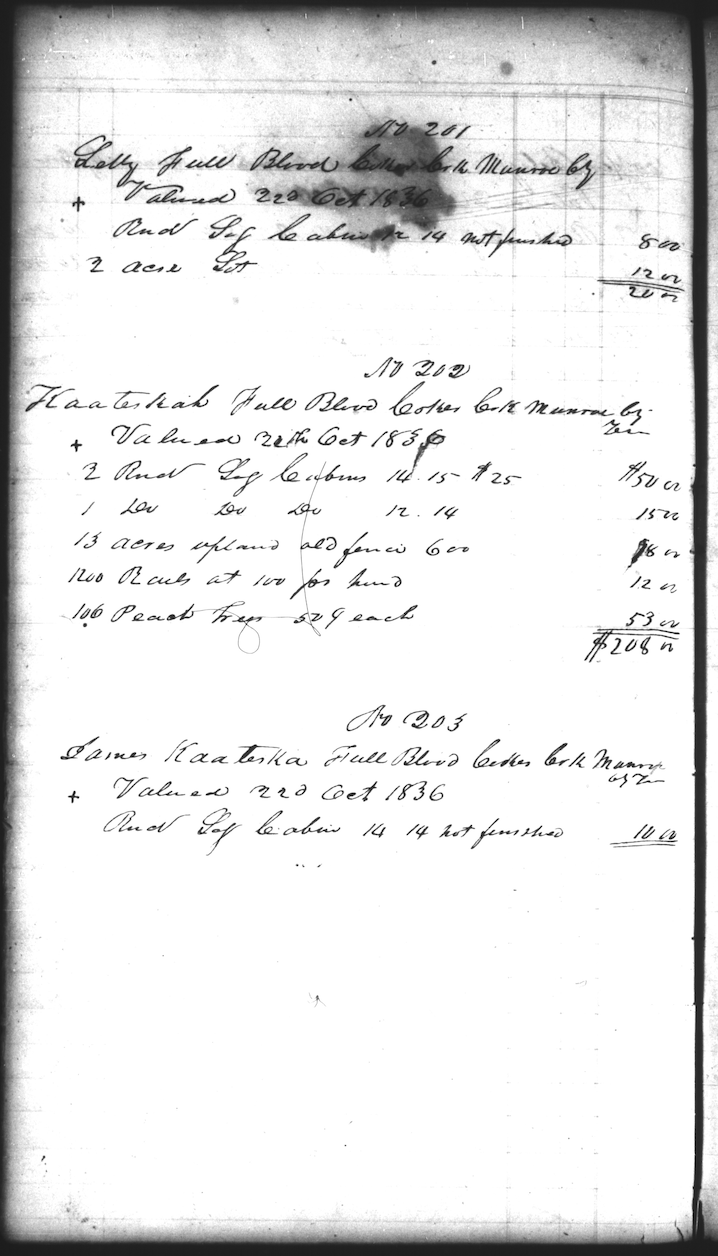 No 201
Full Blood Cokers Crk Munroe Cty
+ Valued 22d Oct 1836
Rnd Log Cabin 12 14 not finished 8 00
2 acre Lot 12 00
20 00
No 202
Kaateskah Full Blood Cokers Crk Munroe Cty
Ten
+ Valued Oct 1836
2 Rnd Log Cabins 14.15 $25 $50 00
1 Do Do Do 12.14 15 00
13 acres upland old fence 600 00
1200 Rails at 100 pr hund 12 00
106 Peach trees 50 each 53 00
$208 00
No 203
James Kaateska Full Blood Cokers Crk Munroe
Cty Ten
+ Valued 22d Oct 1836
Rnd Log Cabin 14 14 not finished 10 00